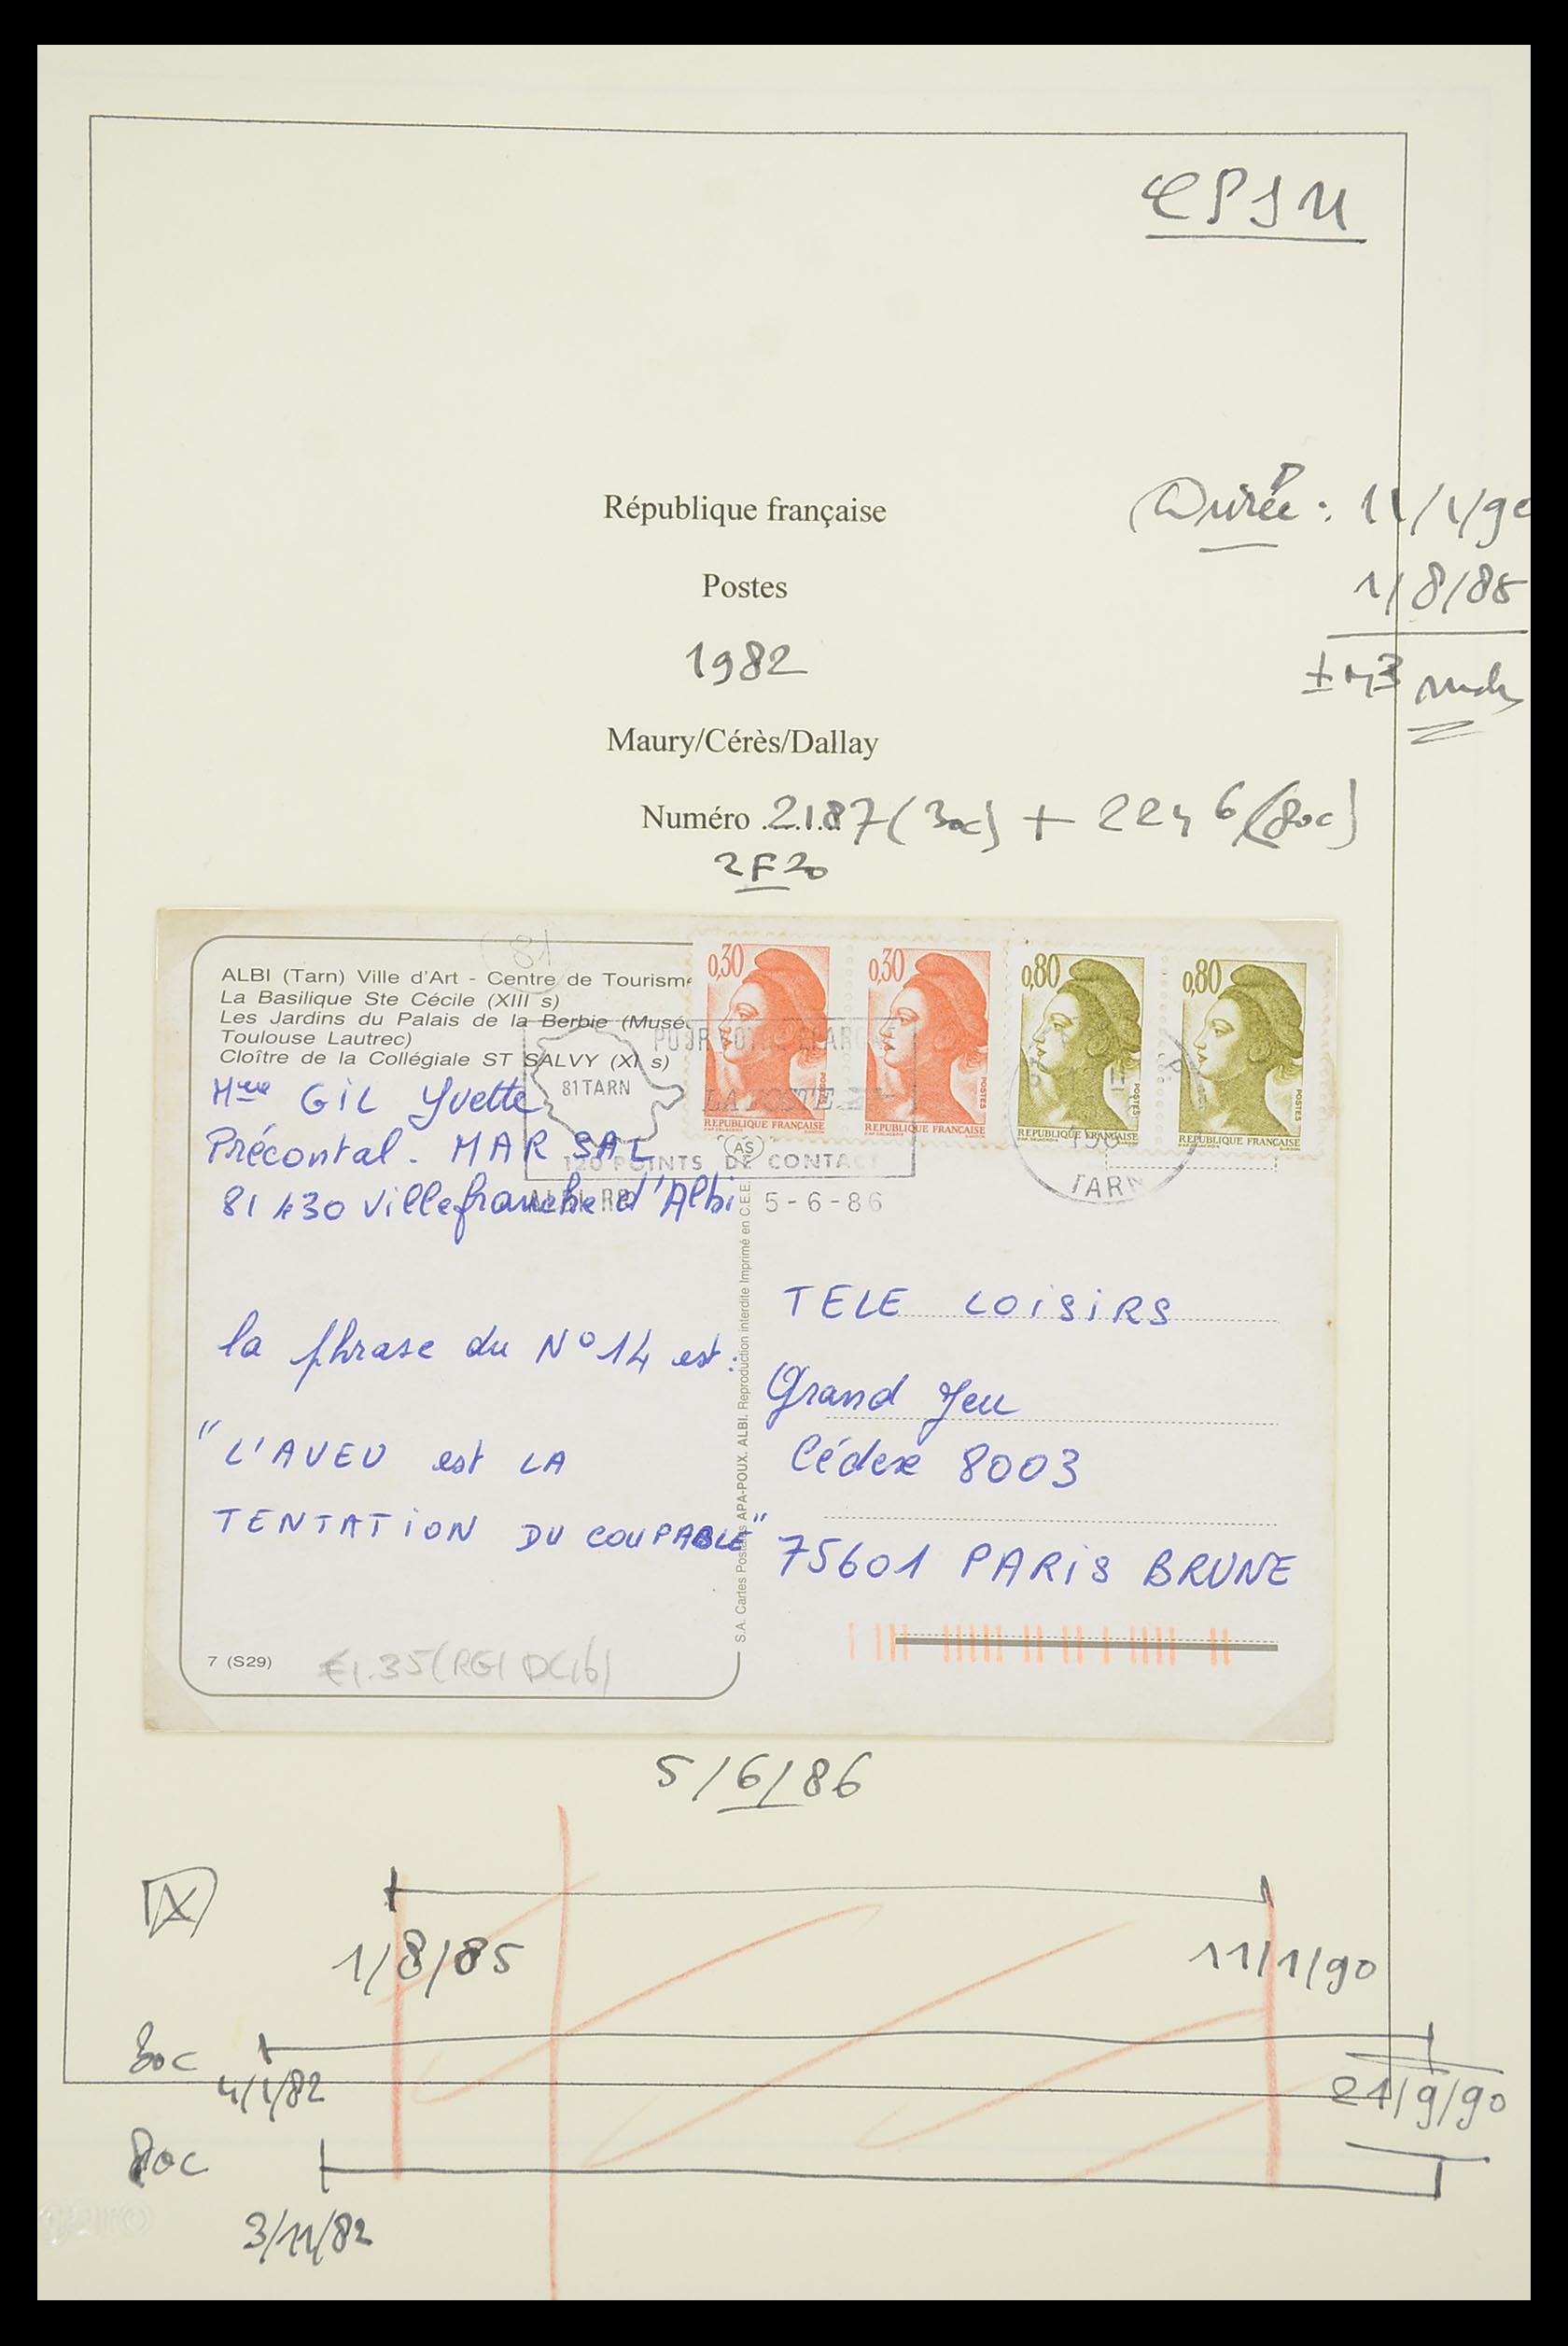 CPSM
République française
Durée : 11/1/90
Postes
1/8/85
1982
Maury/Cérès/Dallay
Numéro 2187 (30c) + 2246 (80c)
2F20
81
ALBI (Tarn) Ville d'Art - Centre de Tourisme
La Basilique Ste Cécile (XIII s)
Les Jardins du Palais de la Berbie (Musée
Toulouse Lautrec)
Cloître de la Collégiale ST SALVY (XI s)
0,30
POSTES
REPUBLIQUE FRANÇAISE
0,30
POSTES
REPUBLIQUE FRANÇAISE
0,80
POSTES
REPUBLIQUE FRANÇAISE
0,80
POSTES
REPUBLIQUE FRANÇAISE
81 TARN
POUR VOTRE
LA POSTE
120 POINTS DE CONTACT
ALBI RP 5-6-86
TARN
AS
Mme GIL Yvette
Précontal. MARSAL
81430 Villefranche d'Albi
la phrase du N° 14 est :
"L'AVEU est LA
TENTATION DU COUPABLE"
S.A. Cartes Postales APA-POUX. ALBI. Reproduction interdite Imprimé en C.E.E.
TELE LOISIRS
Grand Jeu
Cédex 8003
75601 PARIS BRUNE
7 (S29)
€1.35 (RG1 DC16)
5/6/86
X
1/8/85
11/1/90
30c
4/1/82
21/9/90
80c
3/11/82